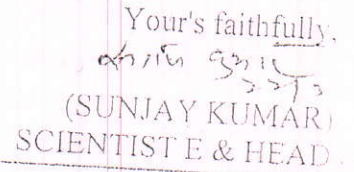 Your's faithfully,
(SUNJAY KUMAR)
SCIENTIST E & HEAD